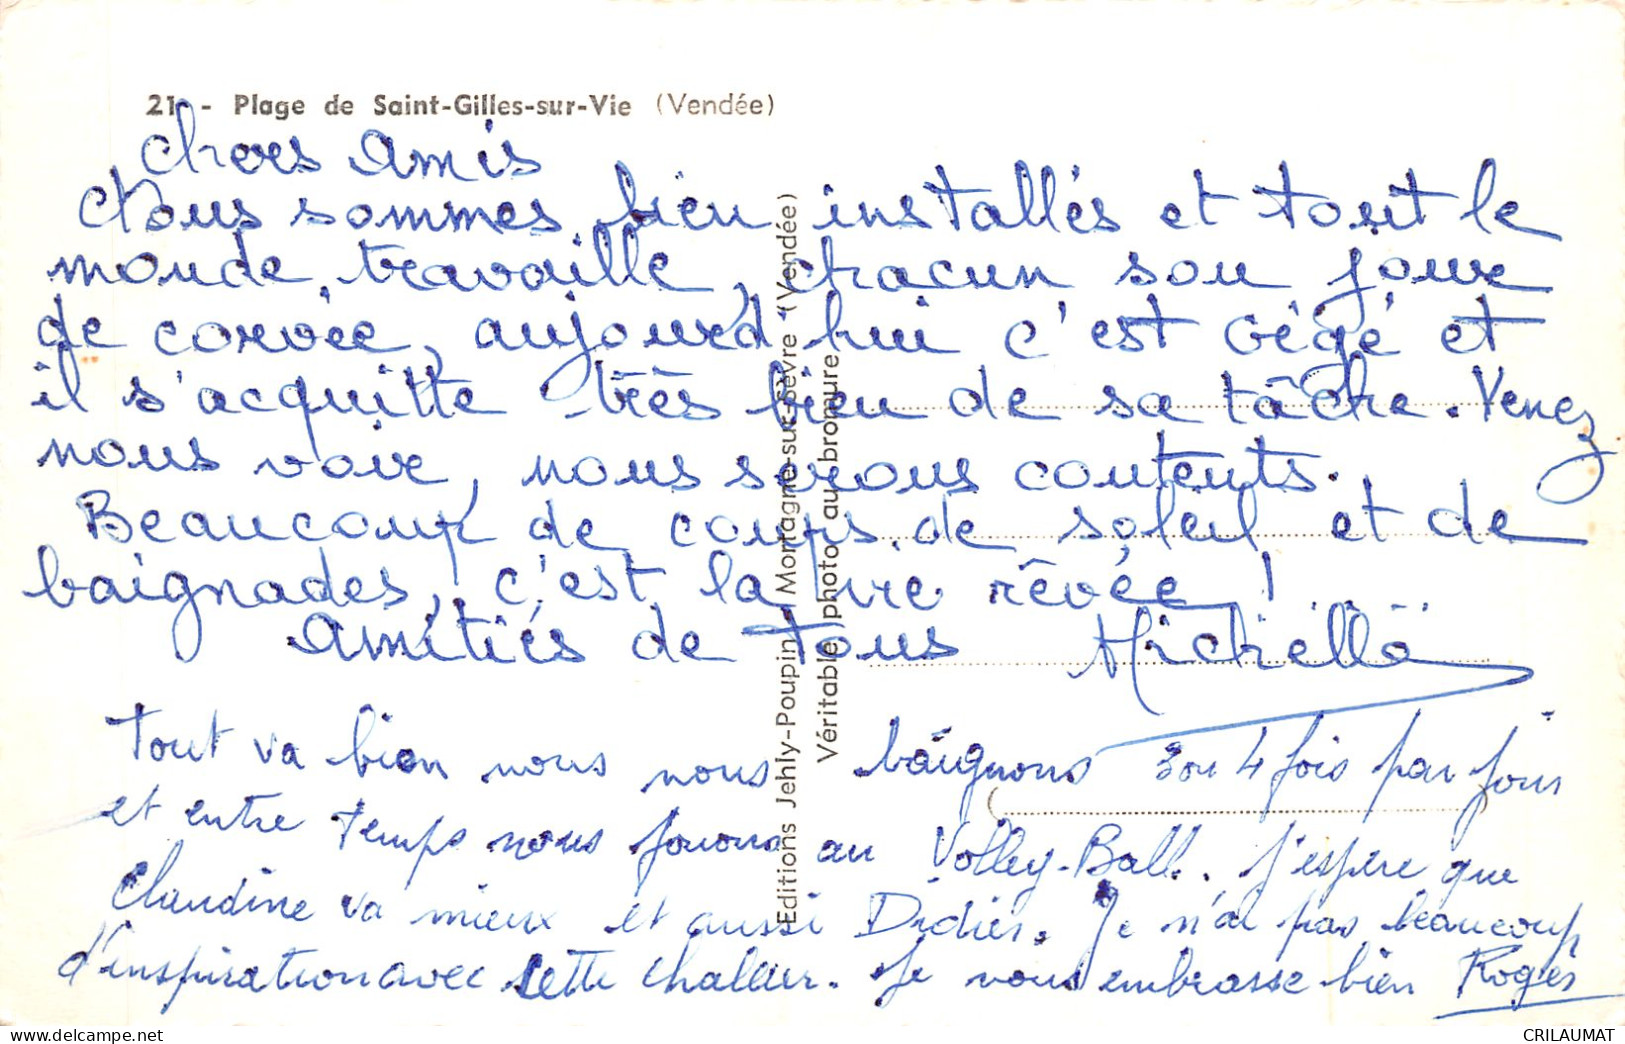 21 - Plage de Saint-Gilles-sur-Vie (Vendée)
Chers Amis
Nous sommes bien installés et tout le
monde travaille, chacun son jour
de corvée, aujourd'hui c'est Gégé et
il s'acquitte très bien de sa tâche. Venez
nous voir, nous serons contents.
Beaucoup de coups de soleil et de
baignades, c'est la vie rêvée !
Amitiés de tous Michelle
Tout va bien nous nous baignons 3 ou 4 fois par jour
et entre temps nous jouons au Volley-Ball. J'espère que
Claudine va mieux et aussi Didier. Je n'ai pas beaucoup
d'inspiration avec cette chaleur. Je vous embrasse bien Roger
Editions Jehly-Poupin - Mortagne-sur-Sèvre (Vendée)
Véritable photo au bromure
CRILAUMAT